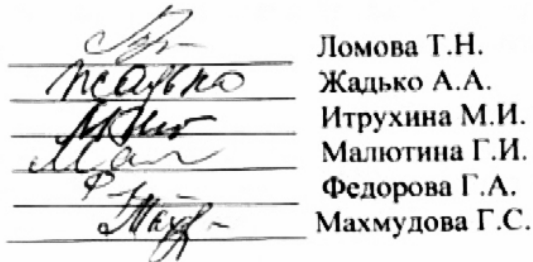 Ломова Т.Н.
Жадько Жадько А.А.
Итрухина М.И.
Малютина Г.И.
Федорова Г.А.
Махмудова Г.С.